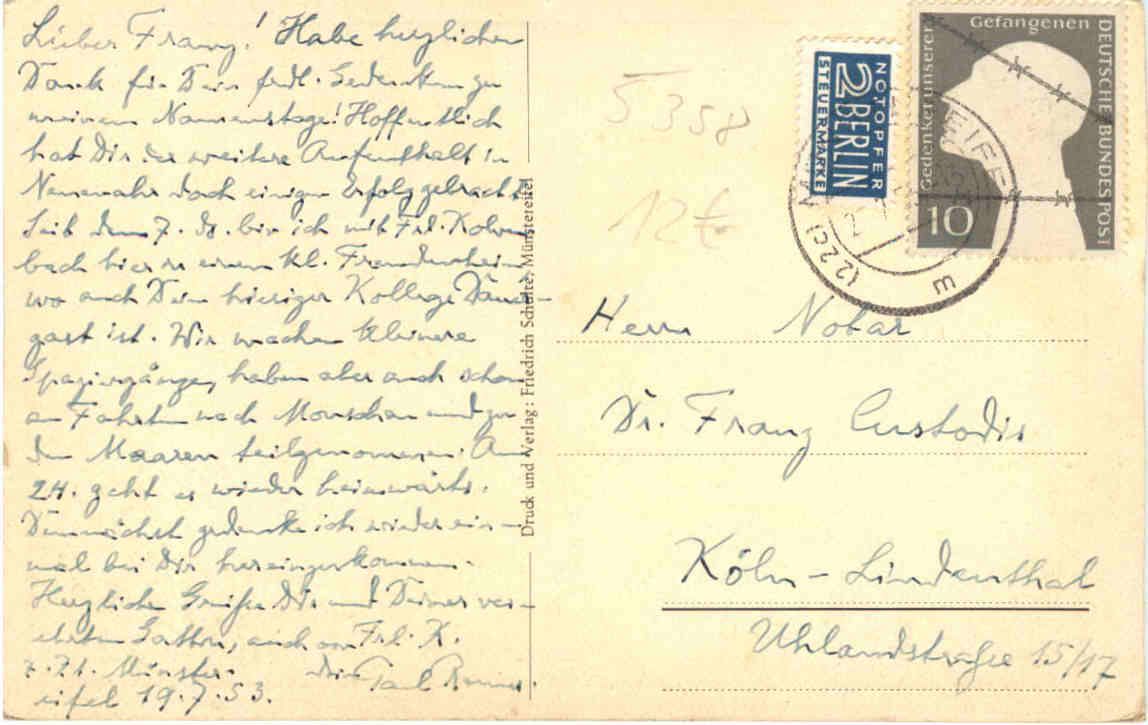 Lieber Franz! Habe herzlichen
Dank für Dein frdl. Gedenken zu
meinem Namenstage! Hoffentlich
hat Dir der weitere Aufenthalt in
Neuenahr doch einigen Erfolg gebracht.
Seit dem 7. ds. bin ich mit Frl. Kolven-
bach hier in einem kl. Fremdenheim
wo auch Dein hiesiger Kollege Dauer-
gast ist. Wir machen kleinere
Spaziergänge, haben aber auch schon
an Fahrten nach Monschau und zu
den Maaren teilgenommen. Am
24. geht es wieder heimwärts.
Demnächst gedenke ich wieder ein-
mal bei Dir hereinzukommen.
Herzliche Grüße Dir und Deiner ver-
ehrten Gattin, auch von Frl. K.
z. Zt. Münster- Dein
eifel 19.7.53.
Druck und Verlag: Friedrich Schulte, Münstereifel
5358
12 €
NOTOPFER
2 BERLIN
STEUERMARKE
Gedenket unserer Gefangenen
DEUTSCHE BUNDESPOST
10
(22c)
EIFEL
Herrn Notar
Dr. Franz Custodis
Köln-Lindenthal
Uhlandstraße 15/17